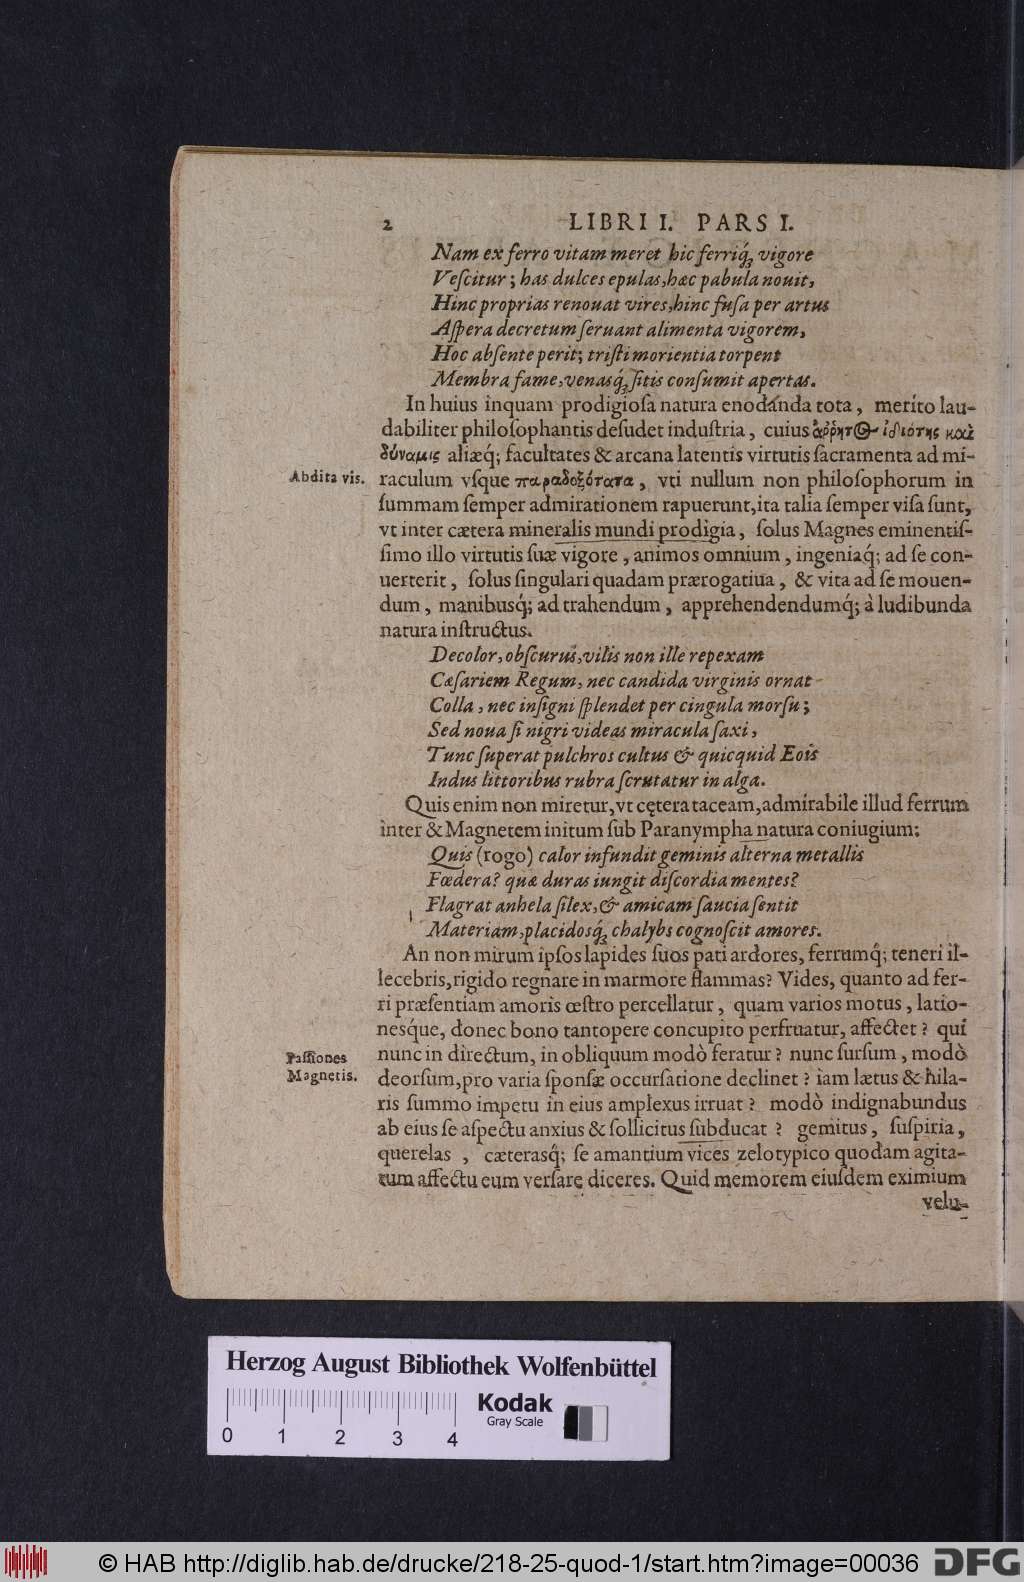 2 LIBRI I. PARS I.
Nam ex ferro vitam meret hic ferriq́; vigore
Veſcitur; has dulces epulas, hæc pabula nouit,
Hinc proprias renouat vires, hinc fuſa per artus
Aſpera decretum ſeruant alimenta vigorem,
Hoc abſente perit; triſti morientia torpent
Membra fame, venasq́; ſitis conſumit apertas.
In huius inquam prodigioſa natura enodanda tota, meríto lau-
dabiliter philoſophantis deſudet induſtria, cuius ἄῤῥητος ἰδιότης καὶ
δύναμις aliæq́; facultates & arcana latentis virtutis ſacramenta ad mi-
Abdita vis.
raculum vſque παραδοξότατα, vti nullum non philoſophorum in
ſummam ſemper admirationem rapuerunt, ita talia ſemper viſa ſunt,
vt inter cætera mineralis mundi prodigia, ſolus Magnes eminentiſ-
ſimo illo virtutis ſuæ vigore, animos omnium, ingeniaq́; ad ſe con-
uerterit, ſolus ſingulari quadam prærogatiua, & vita ad ſe mouen-
dum, manibusq́; ad trahendum, apprehendendumq́; à ludibunda
natura inſtructus.
Decolor, obſcurus, vilis non ille repexam
Cæſariem Regum, nec candida virginis ornat
Colla, nec inſigni ſplendet per cingula morſu;
Sed noua ſi nigri videas miracula ſaxi,
Tunc ſuperat pulchros cultus & quicquid Eois
Indus littoribus rubra ſcrutatur in alga.
Quis enim non miretur, vt cętera taceam, admirabile illud ferrum
inter & Magnetem initum ſub Paranympha natura coniugium;
Quis (rogo) calor infundit geminis alterna metallis
Fœdera? quæ duras iungit diſcordia mentes?
Flagrat anhela ſilex, & amicam ſaucia ſentit
Materiam, placidosq́; chalybs cognoſcit amores.
An non mirum ipſos lapides ſuos pati ardores, ferrumq́; teneri il-
lecebris, rigido regnare in marmore flammas? Vides, quanto ad fer-
ri præſentiam amoris œſtro percellatur, quam varios motus, latio-
nesq́ue, donec bono tantopere concupito perfruatur, affectet? qui
Paſſiones
Magnetis.
nunc in directum, in obliquum modò feratur? nunc ſurſum, modò
deorſum, pro varia ſponſæ occurſatione declinet? iam lætus & hila-
ris ſummo impetu in eius amplexus irruat? modò indignabundus
ab eius ſe aſpectu anxius & ſollicitus ſubducat? gemitus, ſuſpiria,
querelas, cæterasq́; ſe amantium vices zelotypico quodam agita-
tum affectu eum verſare diceres. Quid memorem eiuſdem eximium
velu-
Herzog August Bibliothek Wolfenbüttel
Kodak
Gray Scale
0 1 2 3 4
© HAB http://diglib.hab.de/drucke/218-25-quod-1/start.htm?image=00036
DFG